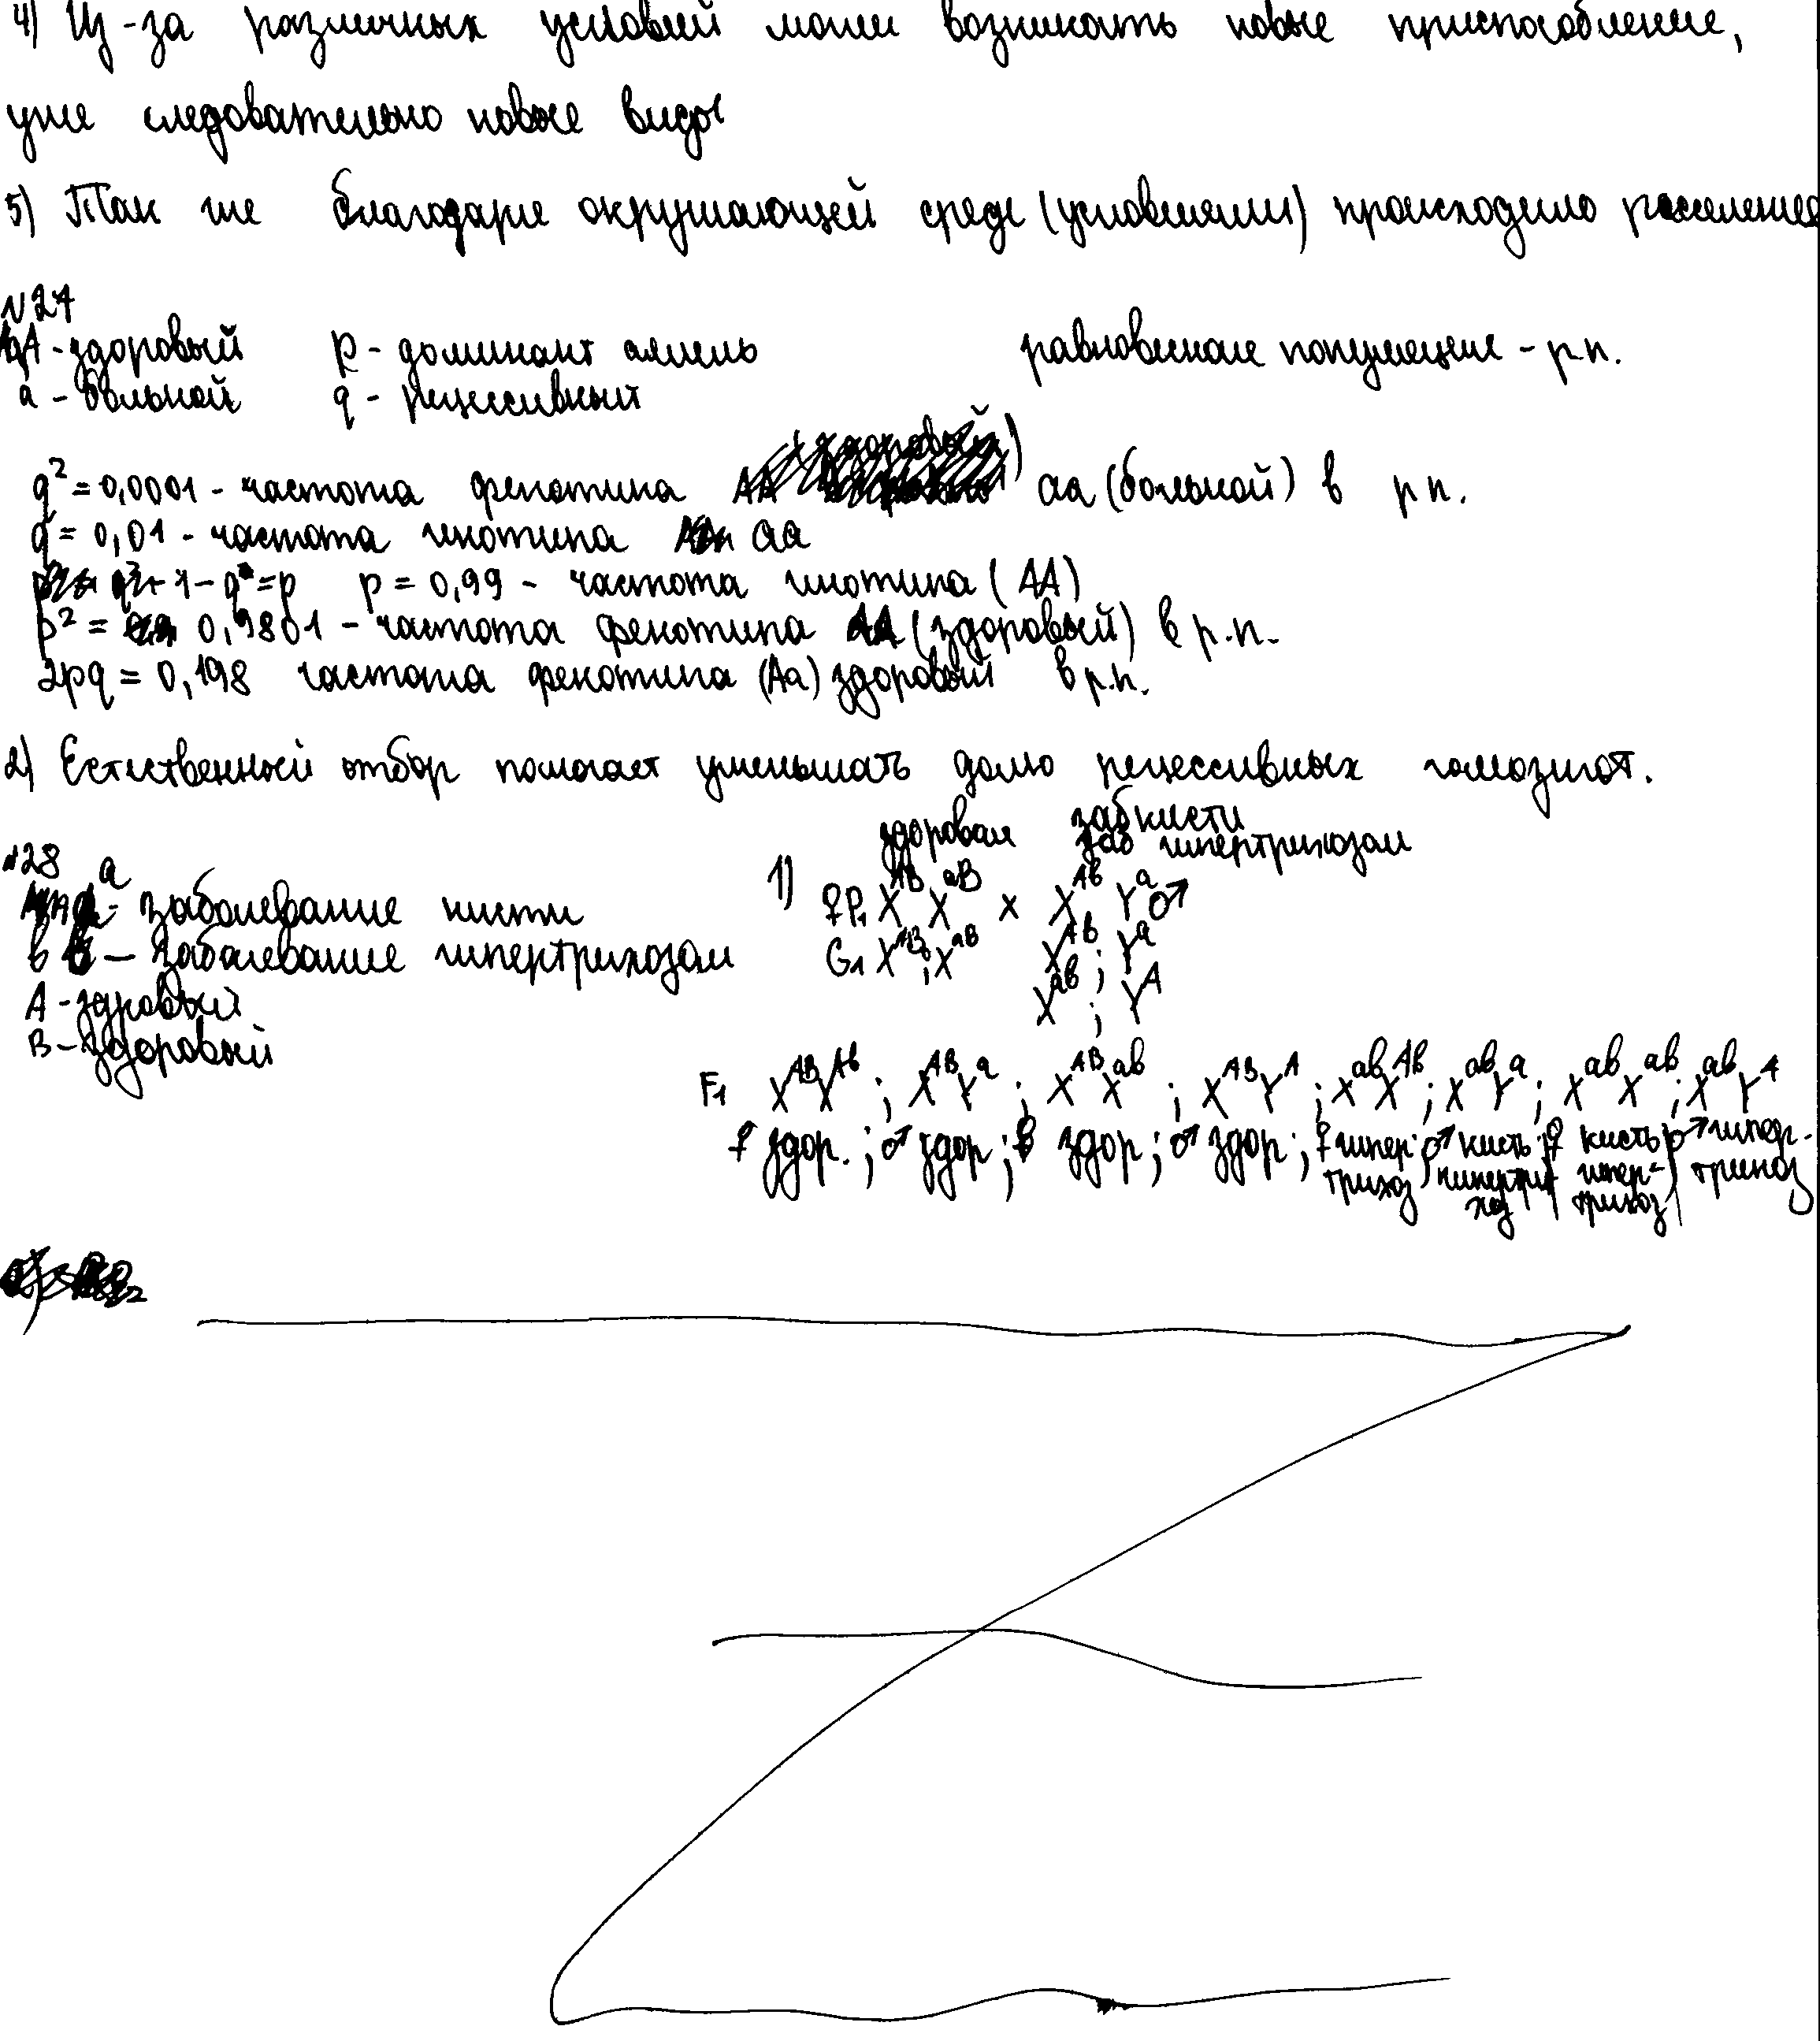 4) Из-за различных условий могли возникать новые приспособление,
уже следовательно новые виды
5) Так же благодаря окружающей среде (условиями) происходило расселение
№27
А - здоровый p - доминант аллель равновесная популяция - р.п.
а - больной q - рецессивный
q² = 0,0001 - частота фенотипа аа (больной) в р п.
q = 0,01 - частота генотипа аа
1 - q = p p = 0,99 - частота генотипа (АА)
p² = 0,9801 - частота фенотипа АА (здоровый) в р.п.
2pq = 0,198 частота фенотипа (Аа) здоровый в р.п.
2) Естественный отбор помогает уменьшать долю рецессивных гомозигот.
№28
здоровая заб кисти
заб гипертрихозом
а - заболевание кисти
в - заболевание гипертрихозом
А - здровый
В - здоровый
1) ♀P₁ X^AB X^aB x X^Ab Y^a ♂
G₁ X^AB; X^aB X^Ab; Y^a
X^ab; Y^A
F₁ X^AB X^Ab; X^AB Y^a; X^AB X^ab; X^AB Y^A; X^ab X^Ab; X^ab Y^a; X^ab X^ab; X^ab Y^A
♀ здор.; ♂ здор; здор; ♂ здор; ♀ гипер ♂ кисть ♀ кисть ♂ гипер-
трихоз гипертри гипер- трихоз
хоз трихоз